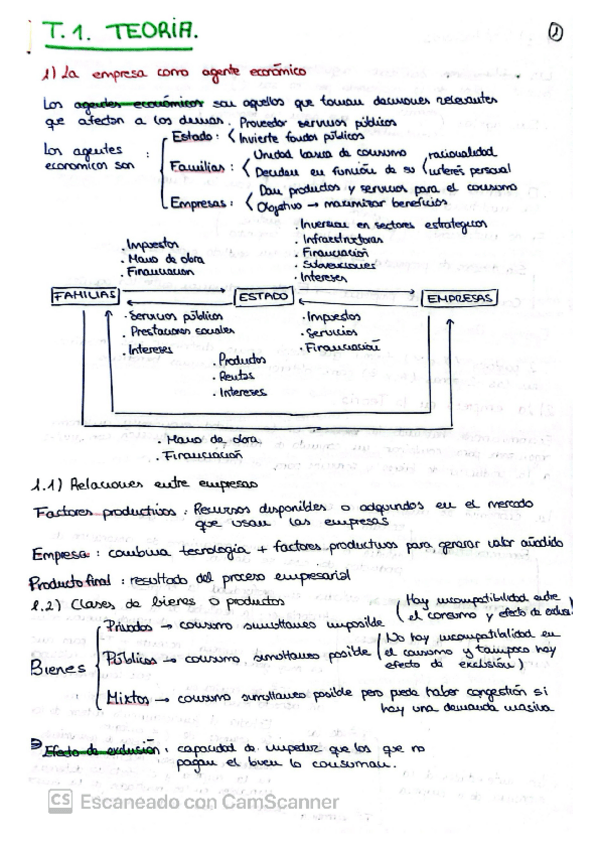 T.1. TEORÍA.
1
1) La empresa como agente económico
Los agentes económicos son aquellos que toman decisiones relevantes
que afectan a los demás. Proveedor servicios públicos
Estado: < Invierte fondos públicos
Los agentes
economicos son :
Familias: < Unidad básica de consumo
Deciden en función de su < racionalidad
interés personal
Empresas: < Dan productos y servicios para el consumo
Objetivo → maximizar beneficios
. Impuestos
. Mano de obra
. Financiación
. Inversión en sectores estrategicos
. Infraestructuras
. Financiación
. Subvenciones
. Intereses
FAMILIAS
ESTADO
EMPRESAS
. Servicios públicos
. Prestaciones sociales
. Intereses
. Impuestos
. Servicios
. Financiación
. Productos
. Rentas
. Intereses
. Mano de obra
. Financiación
1.1) Relaciones entre empresas
Factores productivos : Recursos disponibles o adquiridos en el mercado
que usan las empresas
Empresa : combina tecnología + factores productivos para generar valor añadido
Producto final : resultado del proceso empresarial
1.2) Clases de bienes o productos
Bienes
Privados → consumo simultaneo imposible ( Hay incompatibilidad entre
el consumo y efecto de exclus
Públicos → consumo simultaneo posible ( No hay incompatibilidad en
el consumo y tampoco hay
efecto de exclusión )
Mixtos → consumo simultaneo posible pero puede haber congestión si
hay una demanda masiva
Efecto de exclusión : capacidad de impedir que los que no
pagan el bien lo consuman.
CS Escaneado con CamScanner